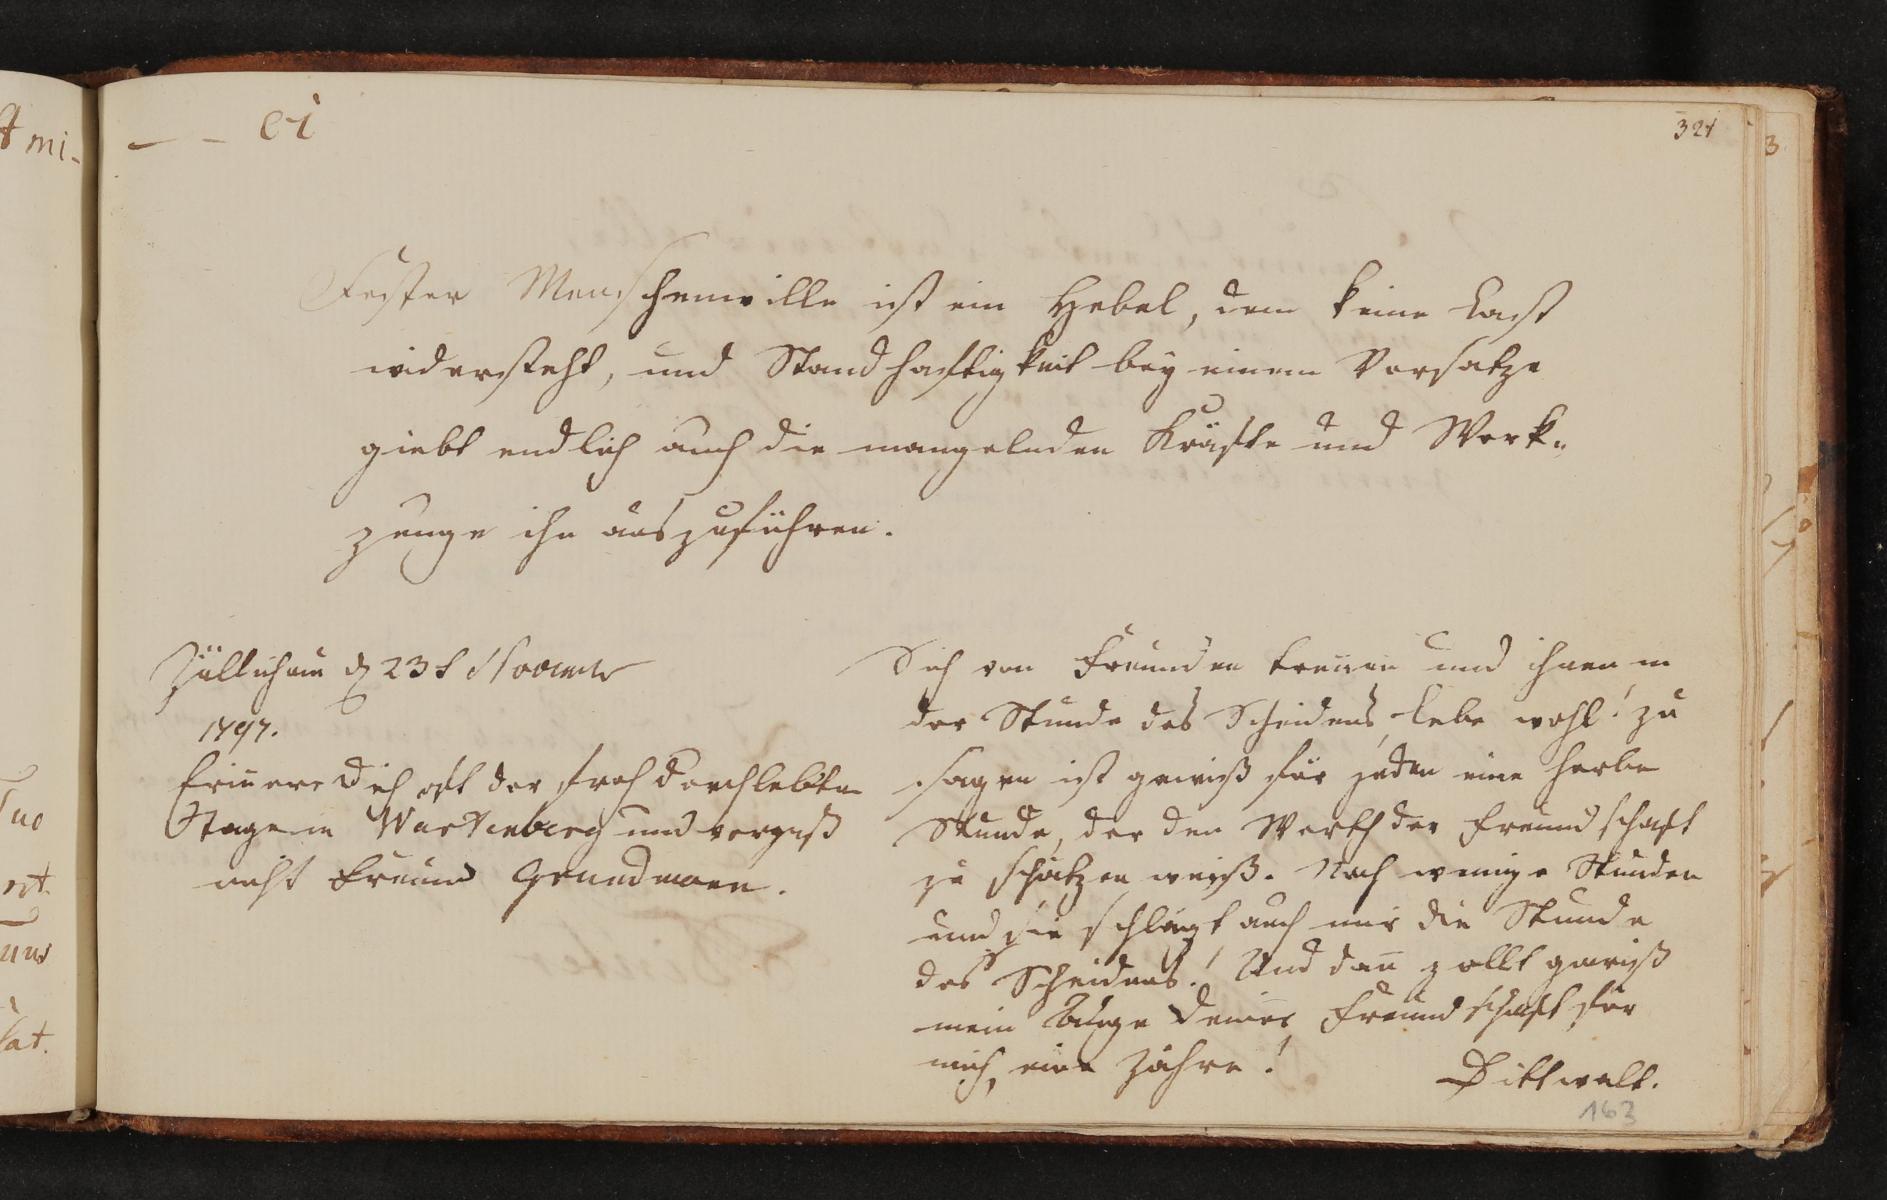 A mi-
— – ci
321
3
Fester Menschenwille ist ein Hebel, dem keine Last
widersteht, und Standhaftigkeit bey einem Vorsatze
giebt endlich auch die mangelnden Kräfte und Werk„
zeuge ihn auszuführen.
Züllichau d 23 t Novembr
1797.
Erinnere Dich oft der froh durchlebten
Tage in Wartenberg und vergiß
nicht Freund Grundmann.
Sich von Freunden trennen und ihnen in
der Stunde des Scheidens, lebe wohl! zu
sagen ist gewiß für jeden eine herbe
Stunde, der den Werth der Freundschaft
zu schätzen weiß. Noch wenige Stunden
und sie schlägt auch mir die Stunde
des Scheidens! Und dann zollt gewiß
mein Auge Deiner Freundschaft für
mich, eine Zähre!
Dittwalt.
163